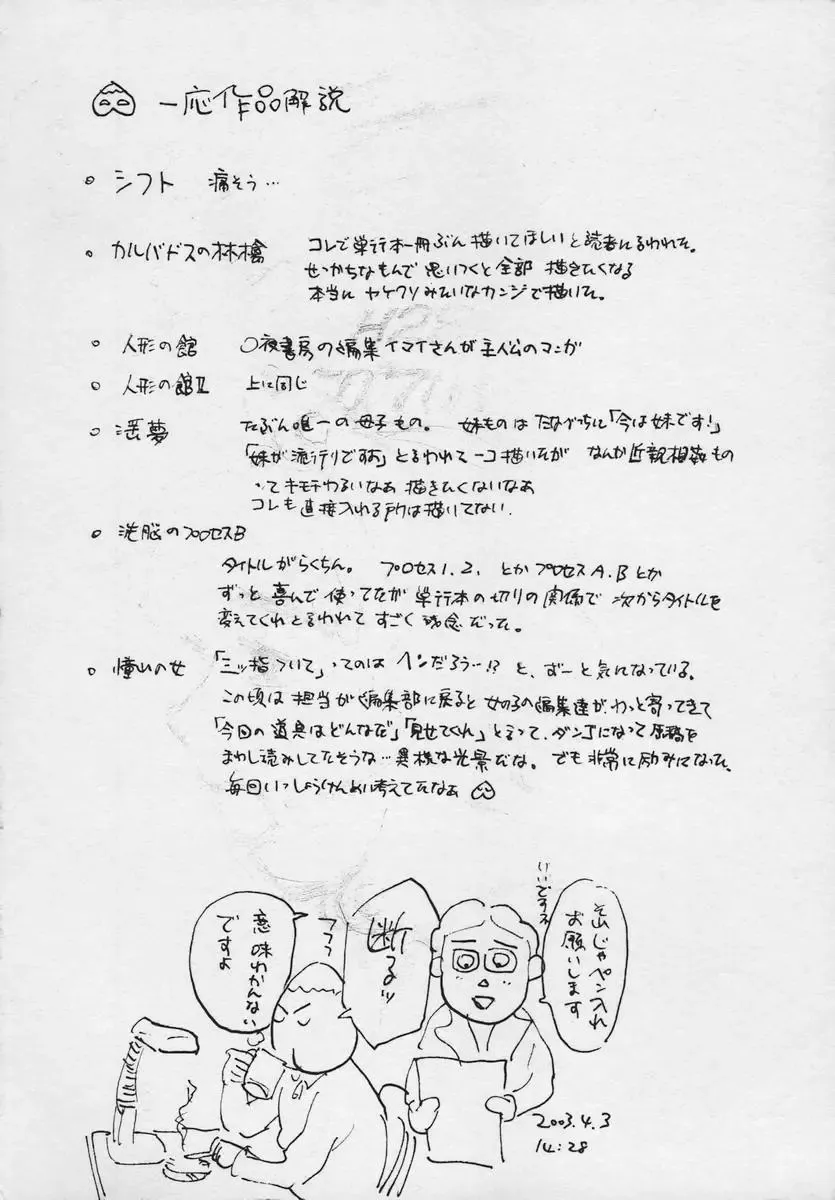 一応作品解説
シフト 痛そう…
カルバドスの林檎 コレで単行本一冊ぶん描いてほしいと読者に言われた。
せっかちなもんで思いつくと全部描きたくなる
本当にヤケクソみたいなカンジで描いた。
人形の館 ○夜書房の編集イマイさんが主人公のマンガ
人形の館Ⅱ 上に同じ
淫夢 たぶん唯一の母子もの。妹ものは「今は妹です!」
「妹が流行りですよ」と言われて一コ描いたが なんか近親相姦もの
ってキモチわるいなぁ 描きたくないなぁ
コレも直接入れる所は描いてない.
洗脳のプロセスB
タイトルがらくちん。 プロセス1.2. とか プロセスA.Bとか
ずっと喜んで使ってたが単行本の切りの関係で次からタイトルを
変えてくれと言われてすごく残念だった。
の女 「三ッ指ついて」ってのはヘンだろう…!? と、ずーと気になっている。
この頃は担当が編集部に戻ると女の子の編集達がわっと寄ってきて
「今回の道具はどんなだ」「見せてくれ」と言って、ダンゴになって原稿を
まわし読みしてたそうな…異様な光景だな。でも非常に励みになった。
毎回いっしょうけんめい考えてたなぁ
それじゃペン入れ
お願いします
いいですね
断るッ
フフフ
意味わかんない
ですよ
2003.4.3
14:28